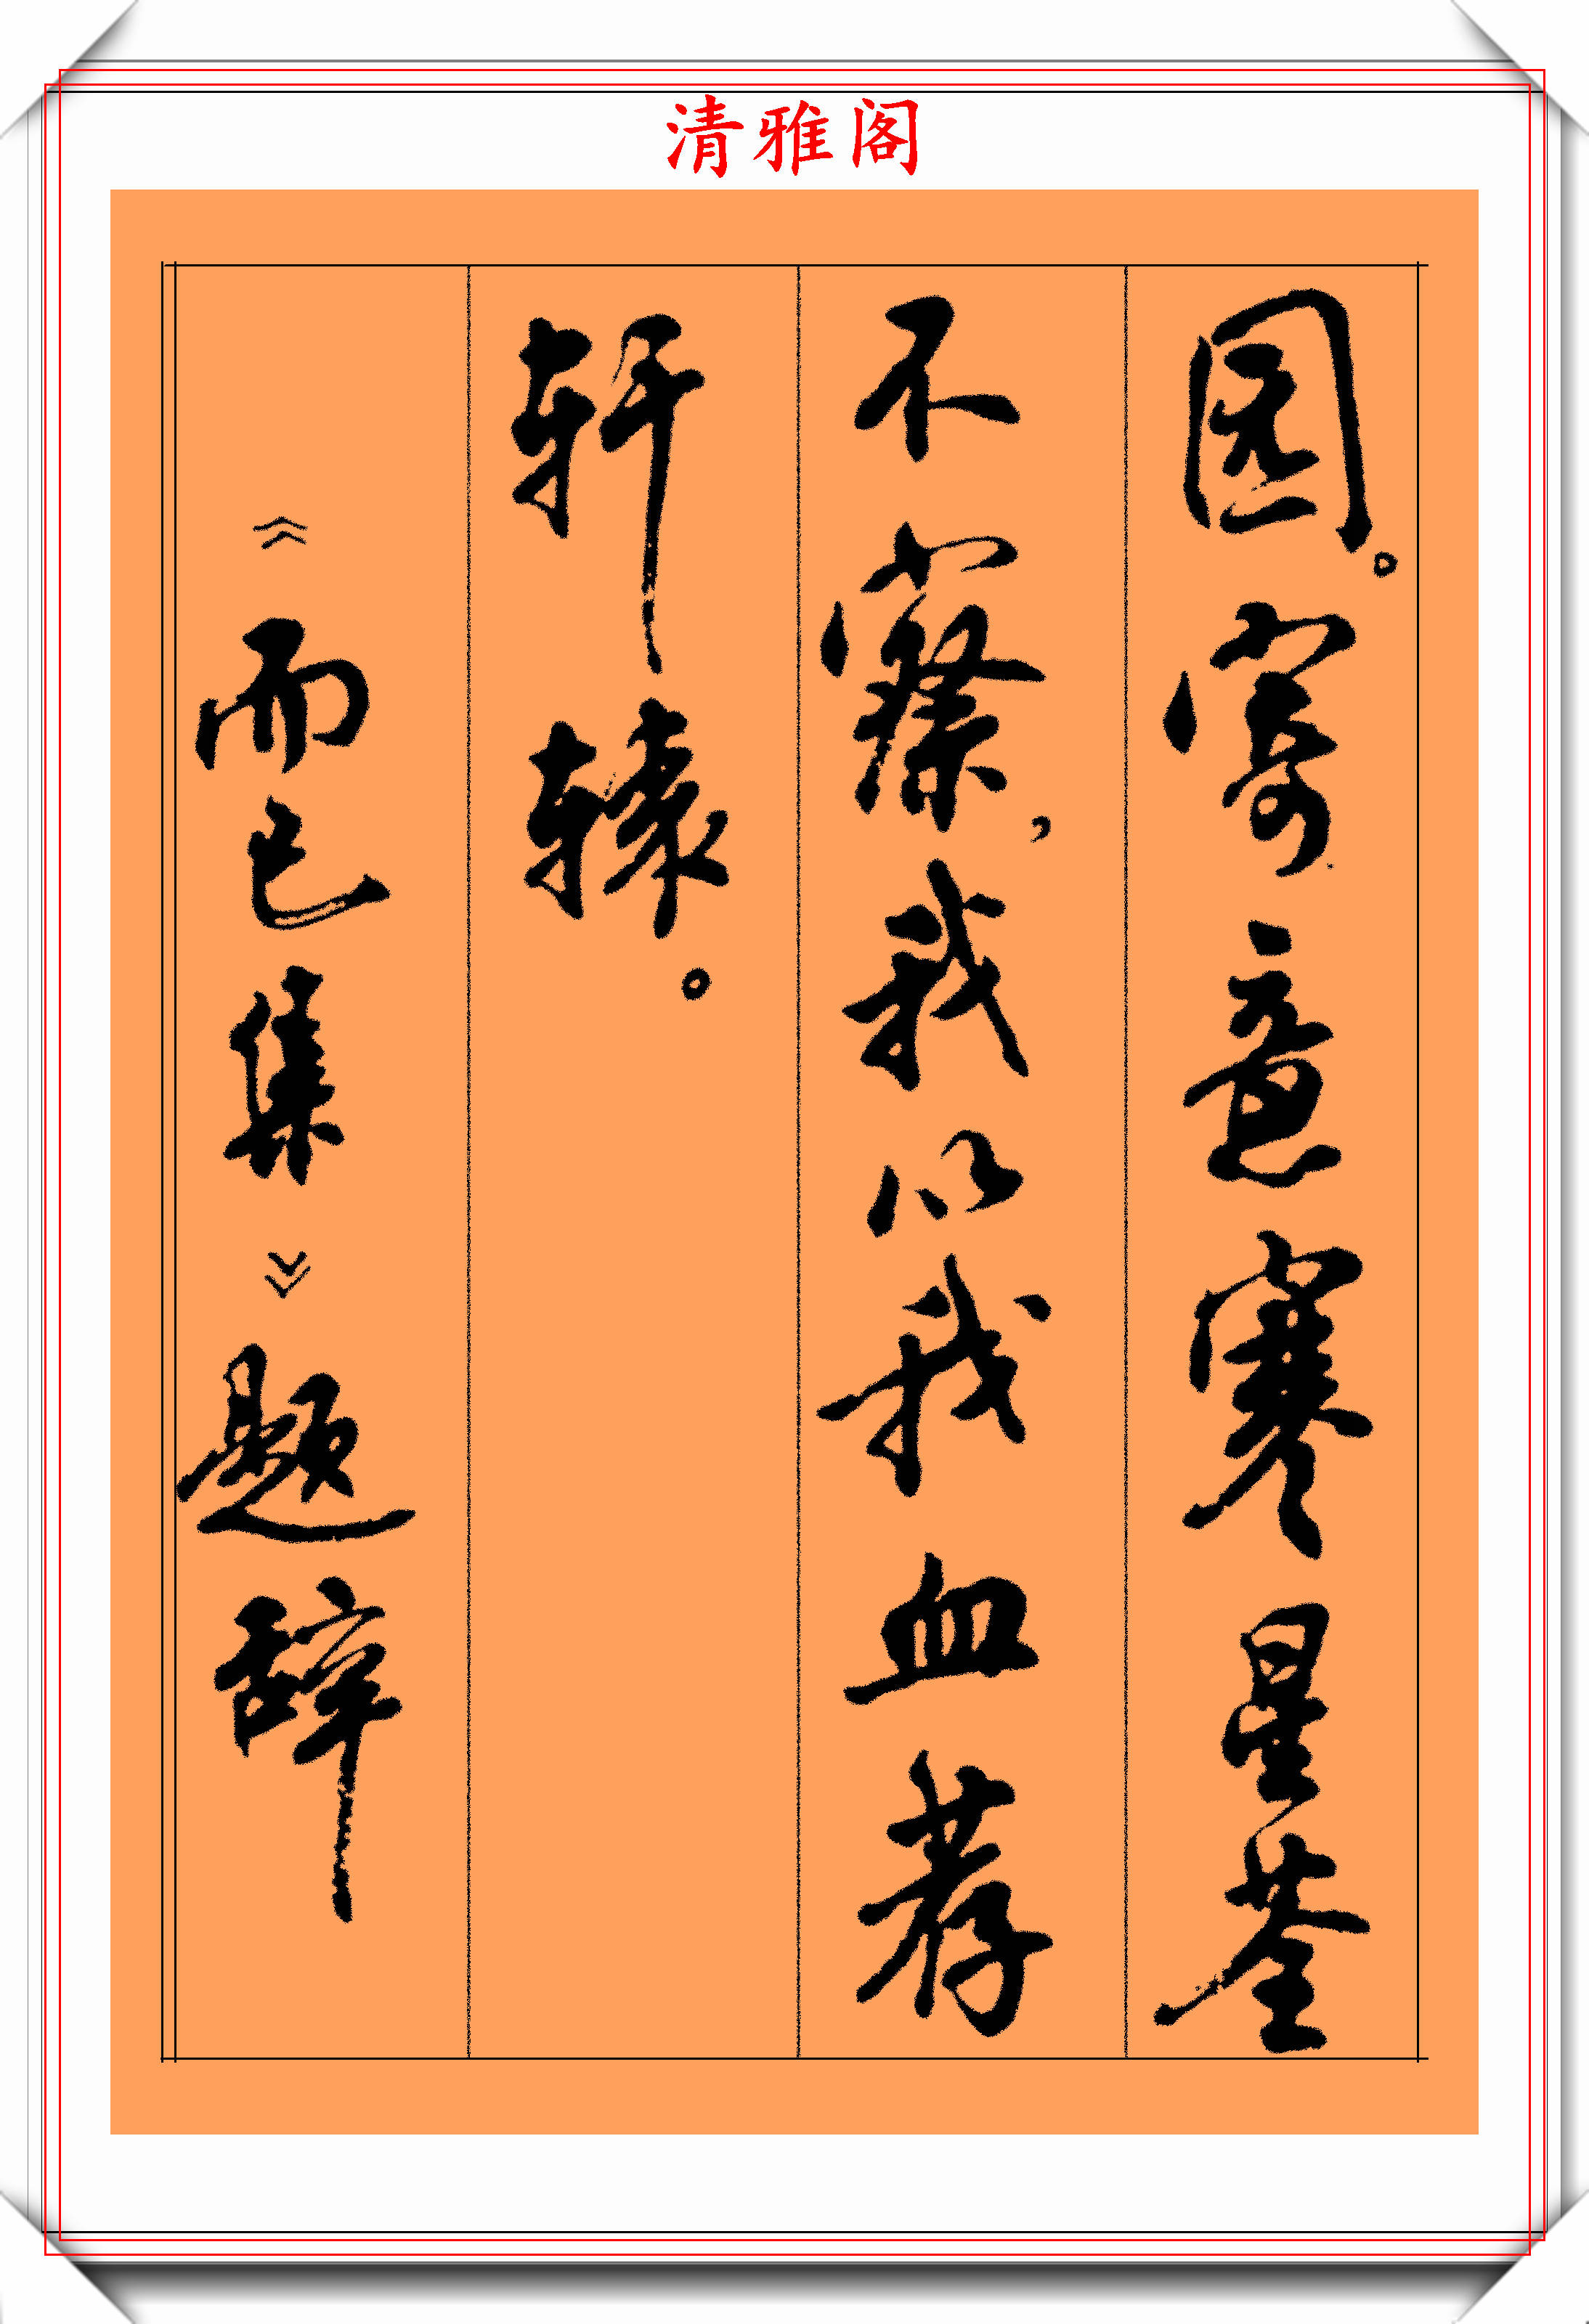 清雅阁
园。寄意寒星荃
不察，我以我血荐
轩辕。
《而已集》题辞